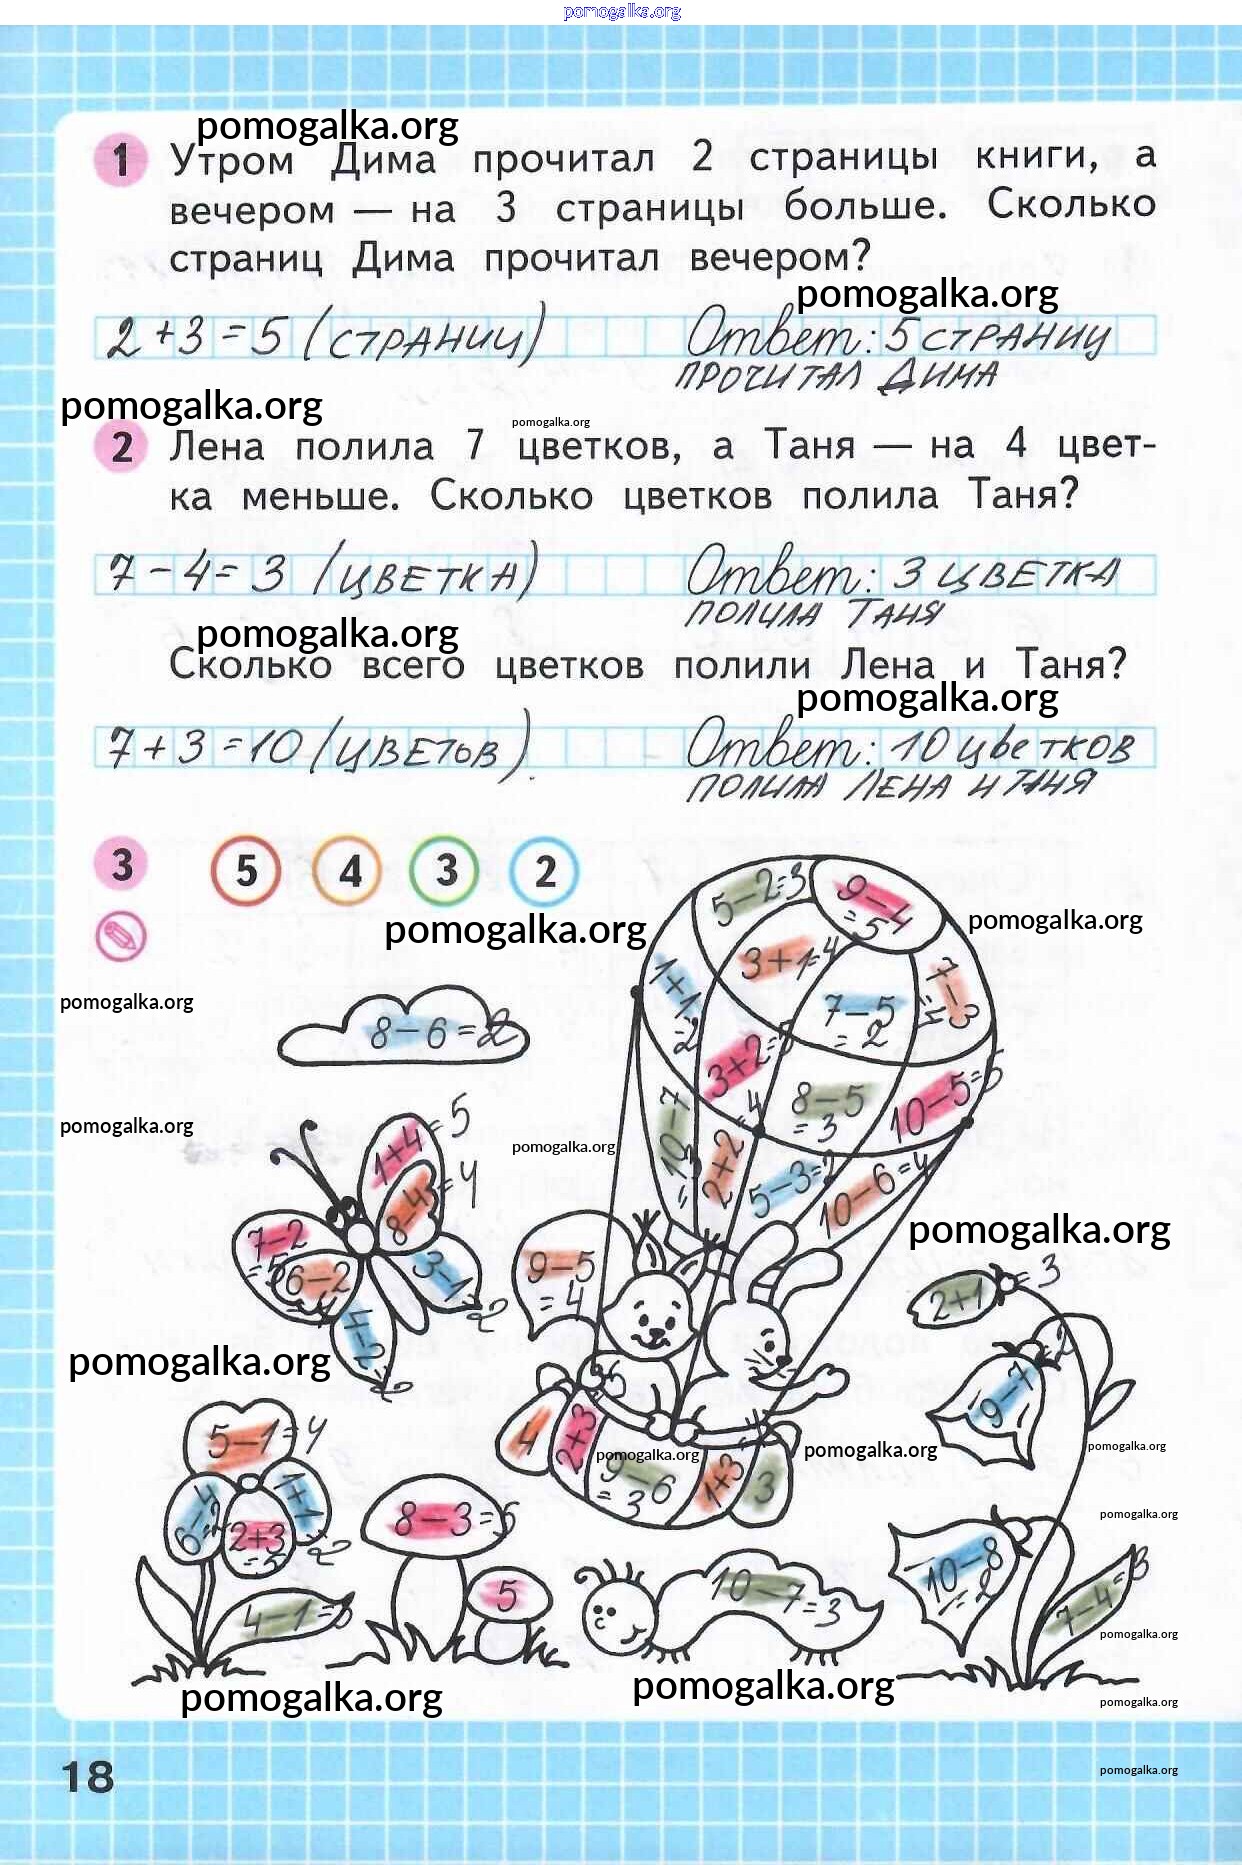 pomogalka.org
pomogalka.org
1 Утром Дима прочитал 2 страницы книги, а
вечером — на 3 страницы больше. Сколько
страниц Дима прочитал вечером?
pomogalka.org
2 + 3 = 5 (СТРАНИЦ) Ответ: 5 СТРАНИЦ
ПРОЧИТАЛ ДИМА
pomogalka.org
pomogalka.org
2 Лена полила 7 цветков, а Таня — на 4 цвет-
ка меньше. Сколько цветков полила Таня?
7 - 4 = 3 (ЦВЕТКА) Ответ: 3 ЦВЕТКА
ПОЛИЛА ТАНЯ
pomogalka.org
Сколько всего цветков полили Лена и Таня?
pomogalka.org
7 + 3 = 10 (ЦВЕТОВ). Ответ: 10 цветков
ПОЛИЛА ЛЕНА И ТАНЯ
3 5 4 3 2
5-2=3
9-4
=5
pomogalka.org
pomogalka.org
3+1=4
1+1
=2
7-3
=4
pomogalka.org
8-6=2
7-5
=2
3+2=5
8-5
=3
10-5=5
pomogalka.org
1+4=5
10-7
=3
2+2=4
pomogalka.org
5-3=2
10-6=4
8-4=4
7-2
=5
6-2
=4
3-1=2
4-2
=2
pomogalka.org
9-5
=4
2+1=3
pomogalka.org
9-7=2
5-1=4
4
2+3
=5
pomogalka.org
pomogalka.org
pomogalka.org
9-6
=3
1+3
3
6-4
=2
1+1
=2
2+3
=5
8-3=5
pomogalka.org
10-8
=2
5
10-7=3
4-1=3
7-4=3
pomogalka.org
pomogalka.org
pomogalka.org
pomogalka.org
18
pomogalka.org